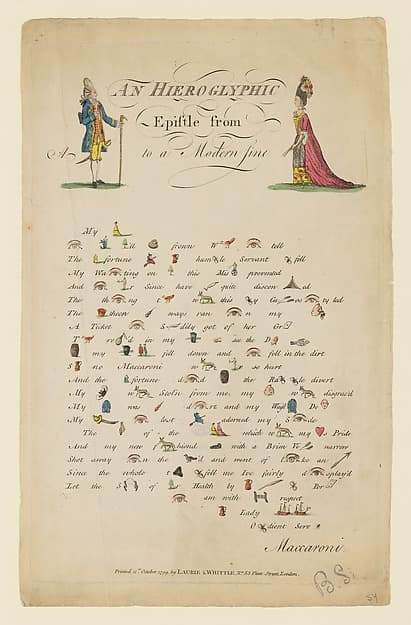 AN HIEROGLYPHIC
Epistle from
A to a Modern fine
My
'll frown W tell
The fortune hum le Servant fell
My Wa ting on this Mis prevented
And r Since have quite discon ed
The th ng t w this ty Ge os ty lid
The theon ways ran n my
A Ticket S dily got of her Gr
T ro d in my as the D
my fell down and fell in the dirt
S no Maccaroni w so hurt
And the fortune d d the Ra le divert
My w Stol'n from me, my w disgrac'd
My was d rt and my Wa De
My lost adorned my S de
The of the which w my Pride
And my new f hiond with a Brim narrow
Shot away n the d and went of ke an
Since the whole t fell me Ive fairly d splay'd
Let the S of Health by Br
am with respect
Lady
O dient Serv
Maccaroni
Printed 21st October 1799, by LAURIE & WHITTLE, No. 53 Fleet Street, London.
B.S.
54